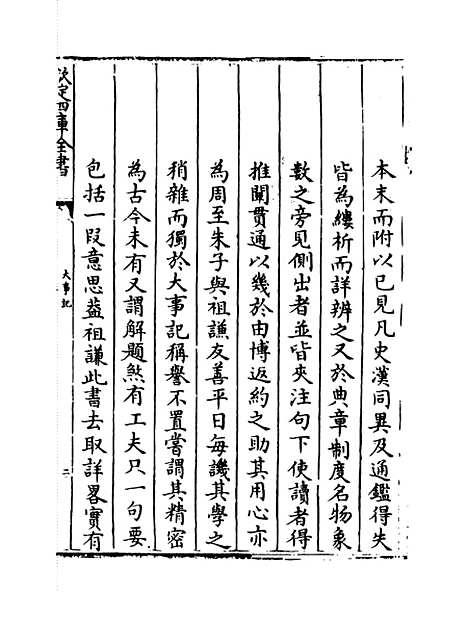 本末而附以已見凡史漢同異及通鑑得失
皆為縷析而詳辨之又於典章制度名物象
數之旁見側出者並皆夾注句下使讀者得
推闡貫通以幾於由博返約之助其用心亦
為周至朱子與祖謙友善平日每譏其學之
稍雜而獨於大事記稱譽不置嘗謂其精密
為古今未有又謂解題煞有工夫只一句要
包括一段意思葢祖謙此書去取詳畧實有
欽定四庫全書
大事記
二